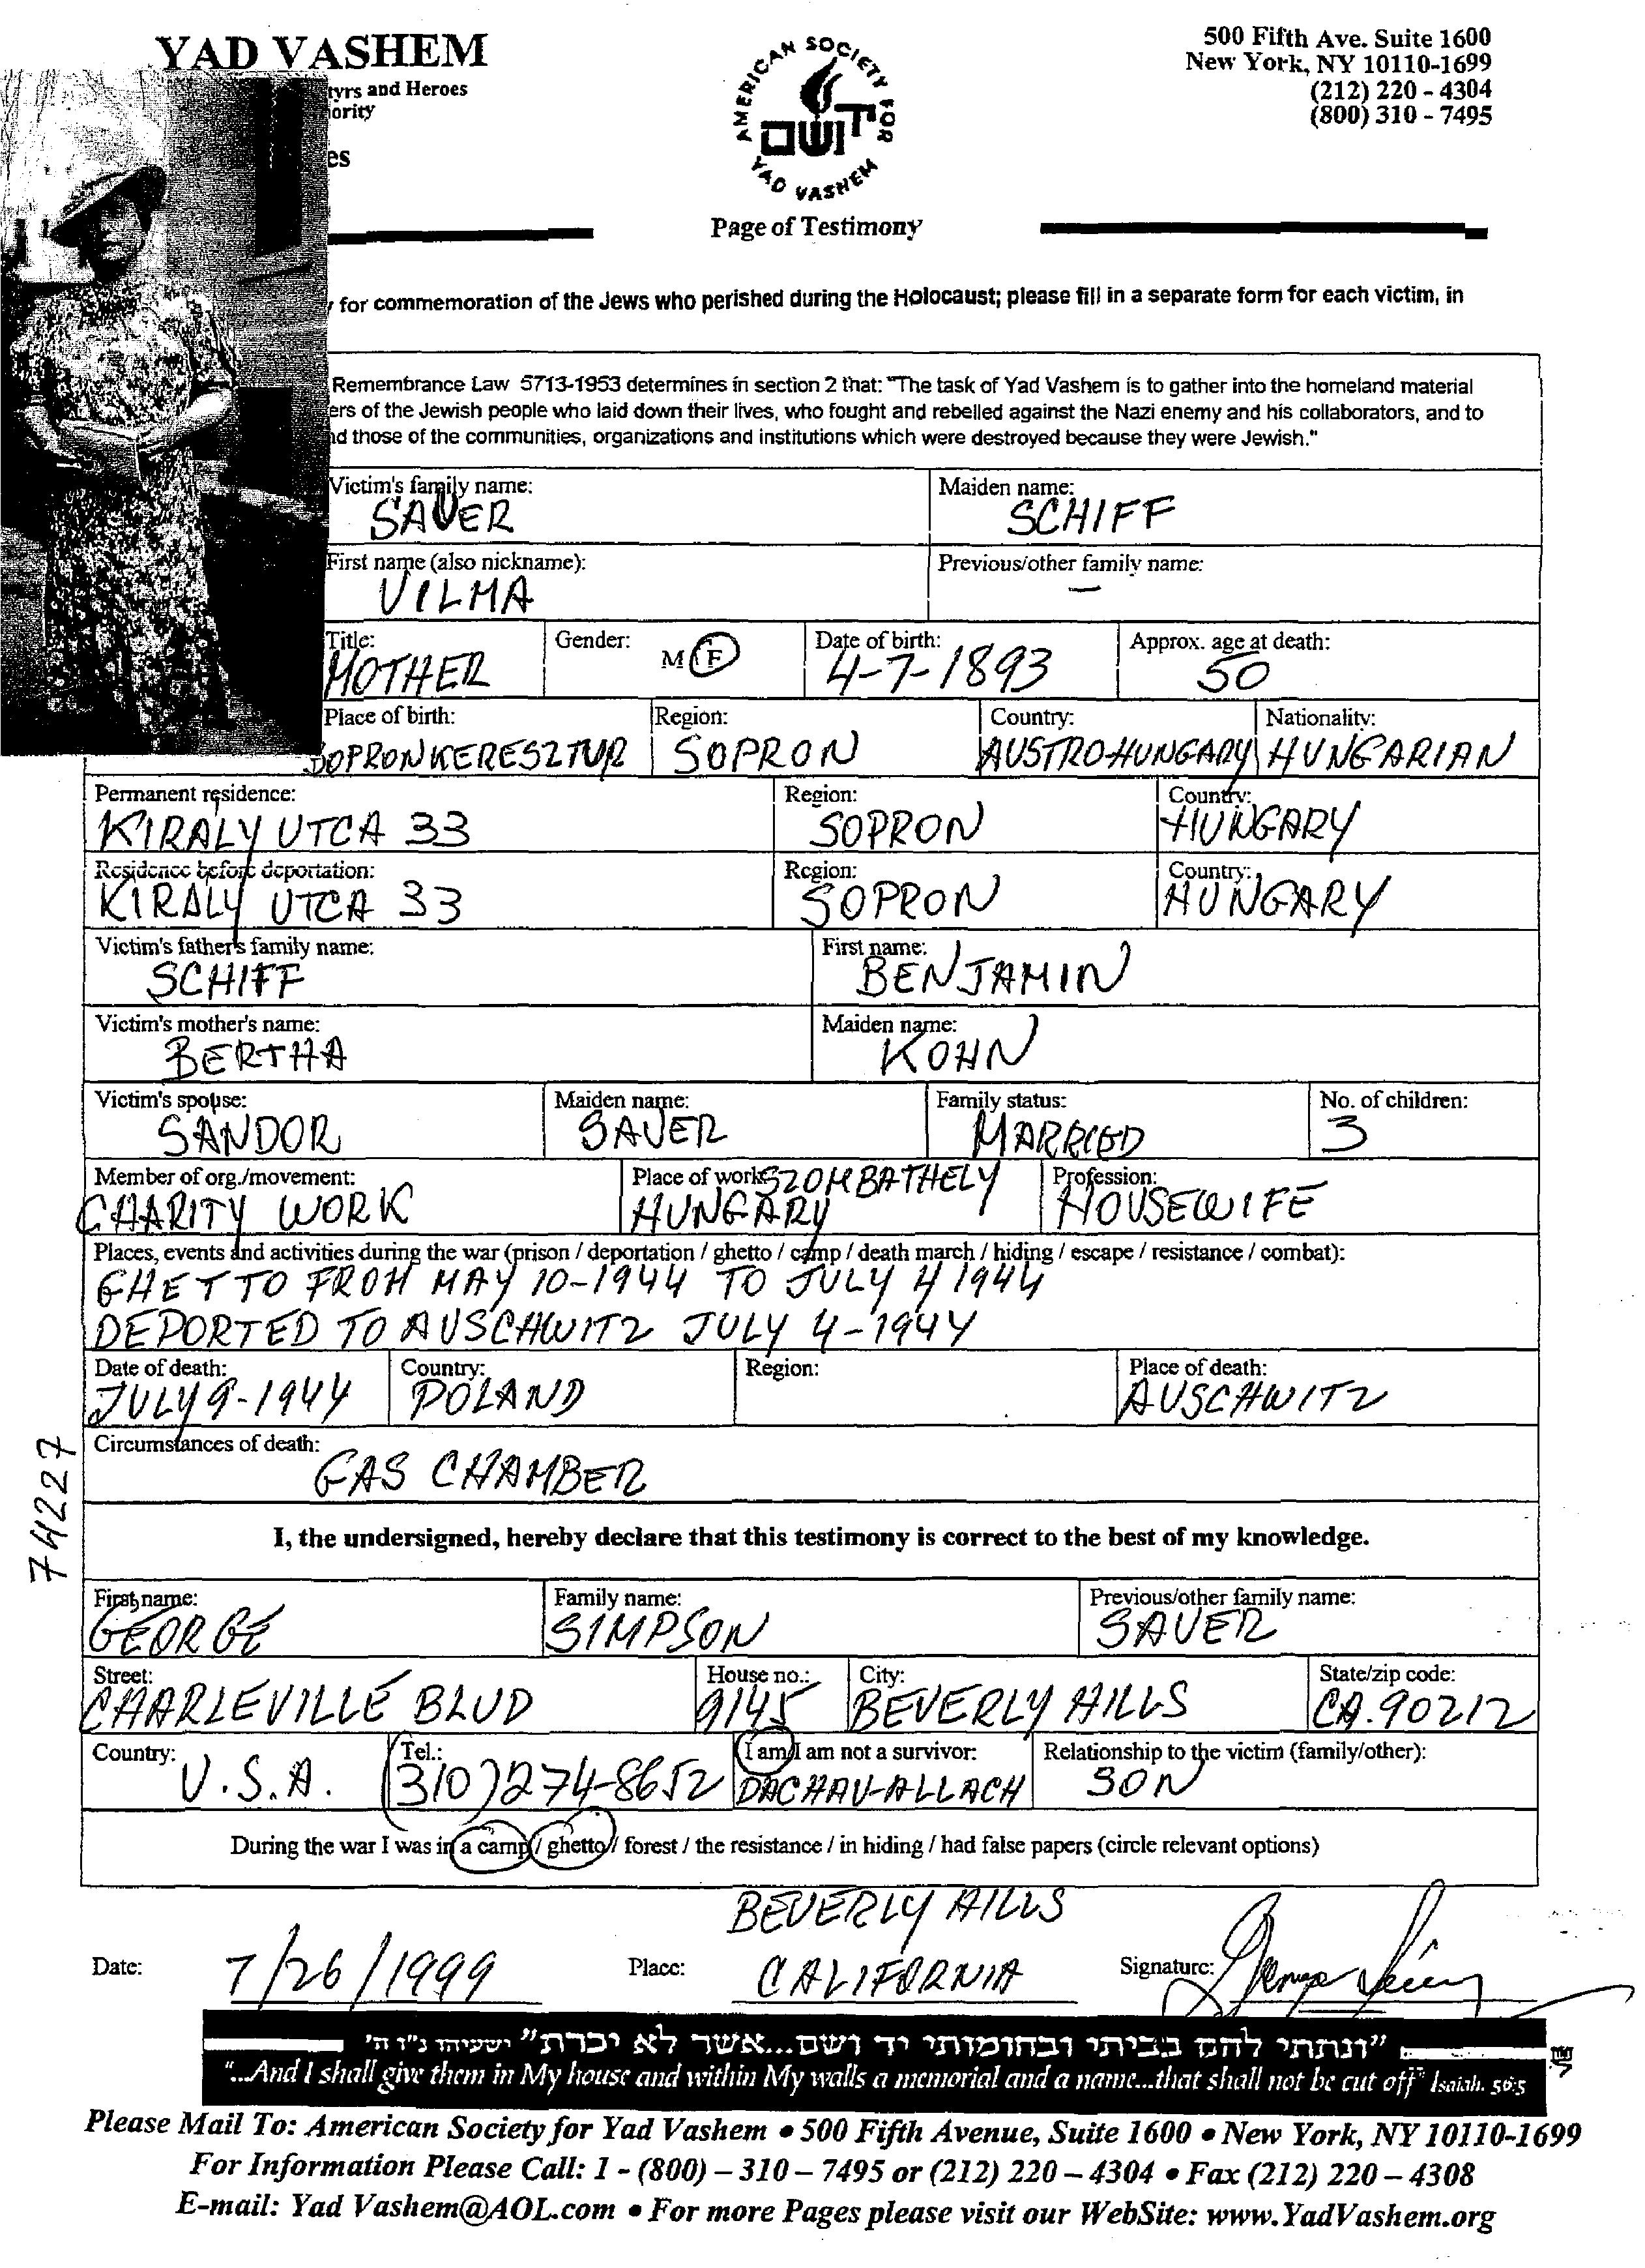 YAD VASHEM
tyrs and Heroes
ority
es
AMERICAN SOCIETY FOR
יד ושם
YAD VASHEM
500 Fifth Ave. Suite 1600
New York, NY 10110-1699
(212) 220 - 4304
(800) 310 - 7495
Page of Testimony
for commemoration of the Jews who perished during the Holocaust; please fill in a separate form for each victim, in
Remembrance Law 5713-1953 determines in section 2 that: "The task of Yad Vashem is to gather into the homeland material
ers of the Jewish people who laid down their lives, who fought and rebelled against the Nazi enemy and his collaborators, and to
d those of the communities, organizations and institutions which were destroyed because they were Jewish."
Victim's family name: Maiden name:
SAUER SCHIFF
First name (also nickname): Previous/other family name:
VILMA —
Title: Gender: M F Date of birth: Approx. age at death:
MOTHER 4-7-1893 50
Place of birth: Region: Country: Nationality:
SOPRONKERESZTUR SOPRON AUSTROHUNGARY HUNGARIAN
Permanent residence: Region: Country:
KIRALY UTCA 33 SOPRON HUNGARY
Residence before deportation: Region: Country:
KIRALY UTCA 33 SOPRON HUNGARY
Victim's father's family name: First name:
SCHIFF BENJAMIN
Victim's mother's name: Maiden name:
BERTHA KOHN
Victim's spouse: Maiden name: Family status: No. of children:
SANDOR SAUER MARRIED 3
Member of org./movement: Place of work: SZOMBATHELY Profession:
CHARITY WORK HUNGARY HOUSEWIFE
Places, events and activities during the war (prison / deportation / ghetto / camp / death march / hiding / escape / resistance / combat):
GHETTO FROM MAY 10-1944 TO JULY 4 1944
DEPORTED TO AUSCHWITZ JULY 4-1944
Date of death: Country: Region: Place of death:
JULY 9-1944 POLAND AUSCHWITZ
Circumstances of death:
GAS CHAMBER
74227
I, the undersigned, hereby declare that this testimony is correct to the best of my knowledge.
First name: Family name: Previous/other family name:
GEORGE SIMPSON SAUER
Street: House no.: City: State/zip code:
CHARLEVILLE BLUD 9145 BEVERLY HILLS CA. 90212
Country: Tel.: I am/I am not a survivor: Relationship to the victim (family/other):
U.S.A. (310) 274-8652 DACHAU-ALLACH SON
During the war I was in a camp / ghetto / forest / the resistance / in hiding / had false papers (circle relevant options)
BEVERLY HILLS
Date: 7/26/1999 Place: CALIFORNIA Signature:
"ונתתי להם בביתי ובחומותי יד ושם...אשר לא יכרת" ישעיהו נ"ו ה'
"...And I shall give them in My house and within My walls a memorial and a name...that shall not be cut off" Isaiah. 56:5
Please Mail To: American Society for Yad Vashem • 500 Fifth Avenue, Suite 1600 • New York, NY 10110-1699
For Information Please Call: 1 - (800) – 310 – 7495 or (212) 220 – 4304 • Fax (212) 220 – 4308
E-mail: Yad Vashem@AOL.com • For more Pages please visit our WebSite: www.YadVashem.org